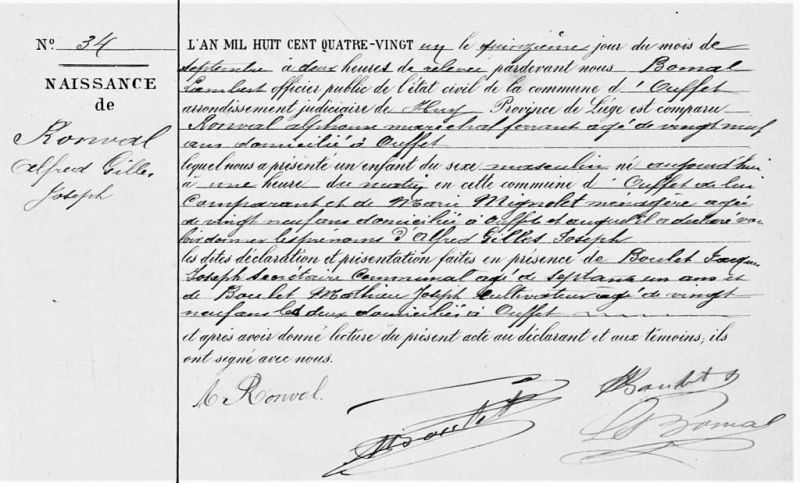 N° 34
NAISSANCE
de
Ronval
Alfred Gilles
Joseph
L'AN MIL HUIT CENT QUATRE-VINGT un le quinzième jour du mois de
septembre à deux heures de relevée pardevant nous Bomal
Lambert officier public de l'état civil de la commune d'Ouffet
arrondissement judiciaire de Huy Province de Liége est comparu
Ronval alphonse maréchal ferrant agé de vingt neuf
ans domicilié à Ouffet
lequel nous a présenté un enfant du sexe masculin né aujourd'hui
à une heure du matin en cette commune d'Ouffet de lui
Comparant et de Marie Mignolet ménagère agée
de vingt neuf ans domiciliée à Ouffet et auquel il a déclaré vou
loir donner les prénoms d'Alfred Gilles Joseph
les dites déclaration et présentation faites en présence de Boulet Jacques
Joseph Secrétaire Communal agé de septante un ans et
de Boulet Mathieu Joseph Cultivateur agé de vingt
neuf ans les deux domiciliés à Ouffet
et après avoir donné lecture du présent acte au déclarant et aux témoins, ils
ont signé avec nous.
A Ronval.
Boulet
Bomal